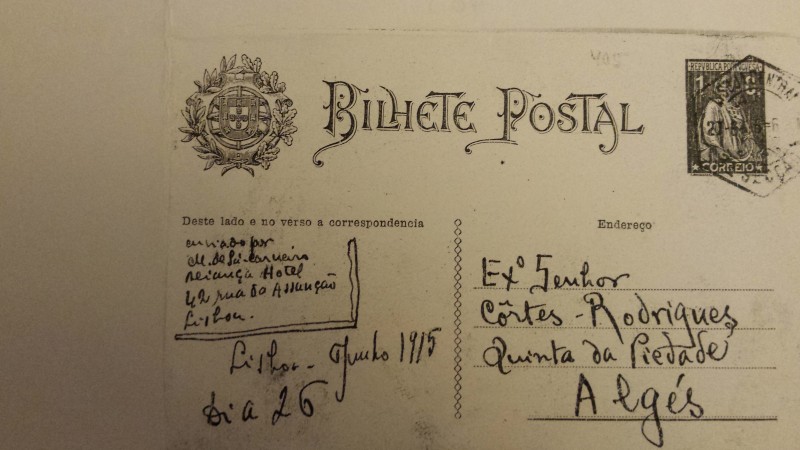 BILHETE POSTAL
REPUBLICA PORTUGUESA
1 C
CORREIO
CENTRAL
Deste lado e no verso a correspondencia
Endereço
enviado por
M. de Sá-Carneiro
Hotel
42 rua da Assunção
Lisboa.
Lisboa - Junho 1915
Dia 26
Exº Senhor
Côrtes-Rodrigues
Quinta da Piedade
Algés